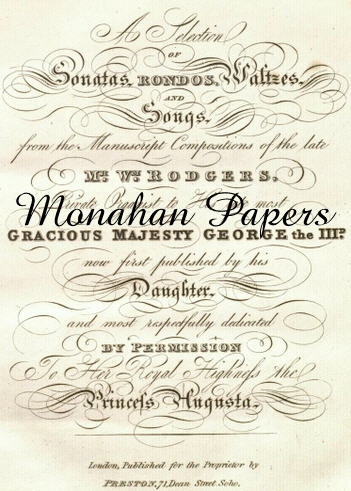 A Selection
OF
Sonatas, RONDOS, Waltzes,
AND
Songs,
from the Manuscript Compositions of the late
Mr. Wm. RODGERS,
Private Organist to His most
Monahan Papers
GRACIOUS MAJESTY GEORGE the IIID.
now first published by his
Daughter,
and most respectfully dedicated
BY PERMISSION
To Her Royal Highneſs the
Princeſs Augusta.
London, Published for the Proprietor by
PRESTON, 71, Dean Street Soho.